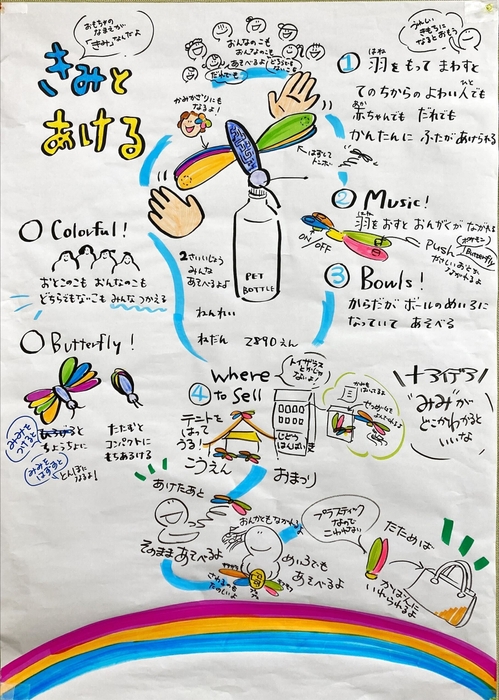 おもちゃの
なまえが
「きみ」なんだよ
きみと
あける
おんなのこも
おんなのこも
あそべるよ!
だれでも
うれしい
きもちに
なると おもう
かみかざりにも
なるよ!
① 羽をもって まわすと
てのちからの よわい人でも
赤ちゃんでも だれでも
かんたんに ふたがあけられる
はずして
トンボ
② Music!
羽をおすと おんがくが ながれる
ON/OFF
Push
Butterfly
PET
BOTTLE
○ Colorful!
おとこのこも おんなのこも
どちらでもないこも みんなつかえる
2さいいじょう
みんな
あそべるよ
ねんれい
ねだん 2890えん
③ Bowls!
からだが ボールのめいろに
なっていて あそべる
○ Butterfly!
みみを
つけると
ちょうちょに
みみを
はずすと
とんぼに
なるよ!
たたむと
コンパクトに
もちあるける
④ where
to sell
トイザラス
とかじゃ
ないよ!
テントを
はって
うる!
こうえん
じどう
はんばいき
おまつり
+アイデア
"みみ"が
どこかわかると
いいな
あけたあと
そのままあそべるよ
おんがくもながれるよ
めいろでも
あそべるよ
さわるのも
たのしいよ
プラスティック
なので
こわれない
たためば
かばんに
いれられるよ